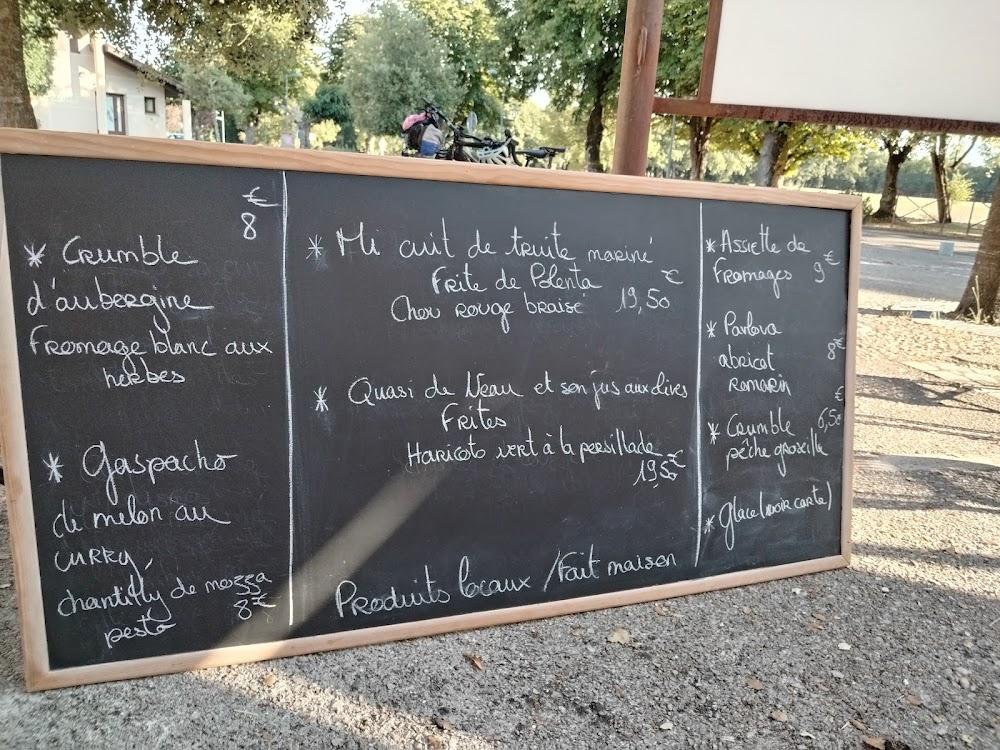 €
8
* Crumble
d'aubergine
Fromage blanc aux
herbes
* Gaspacho
de melon au
curry,
chantilly de mozza
8€
pesto
* Mi cuit de truite mariné
Frite de Polenta
Chou rouge braisé 19,50 €
* Quasi de Veau et son jus aux olives
Frites
Haricots vert à la persillade
19,50 €
Produits locaux / Fait maison
* Assiette de
Fromages 9 €
* Pavlova
abricot 8€
romarin
* Crumble 6,50 €
pêche groseille
* Glace (voir carte)